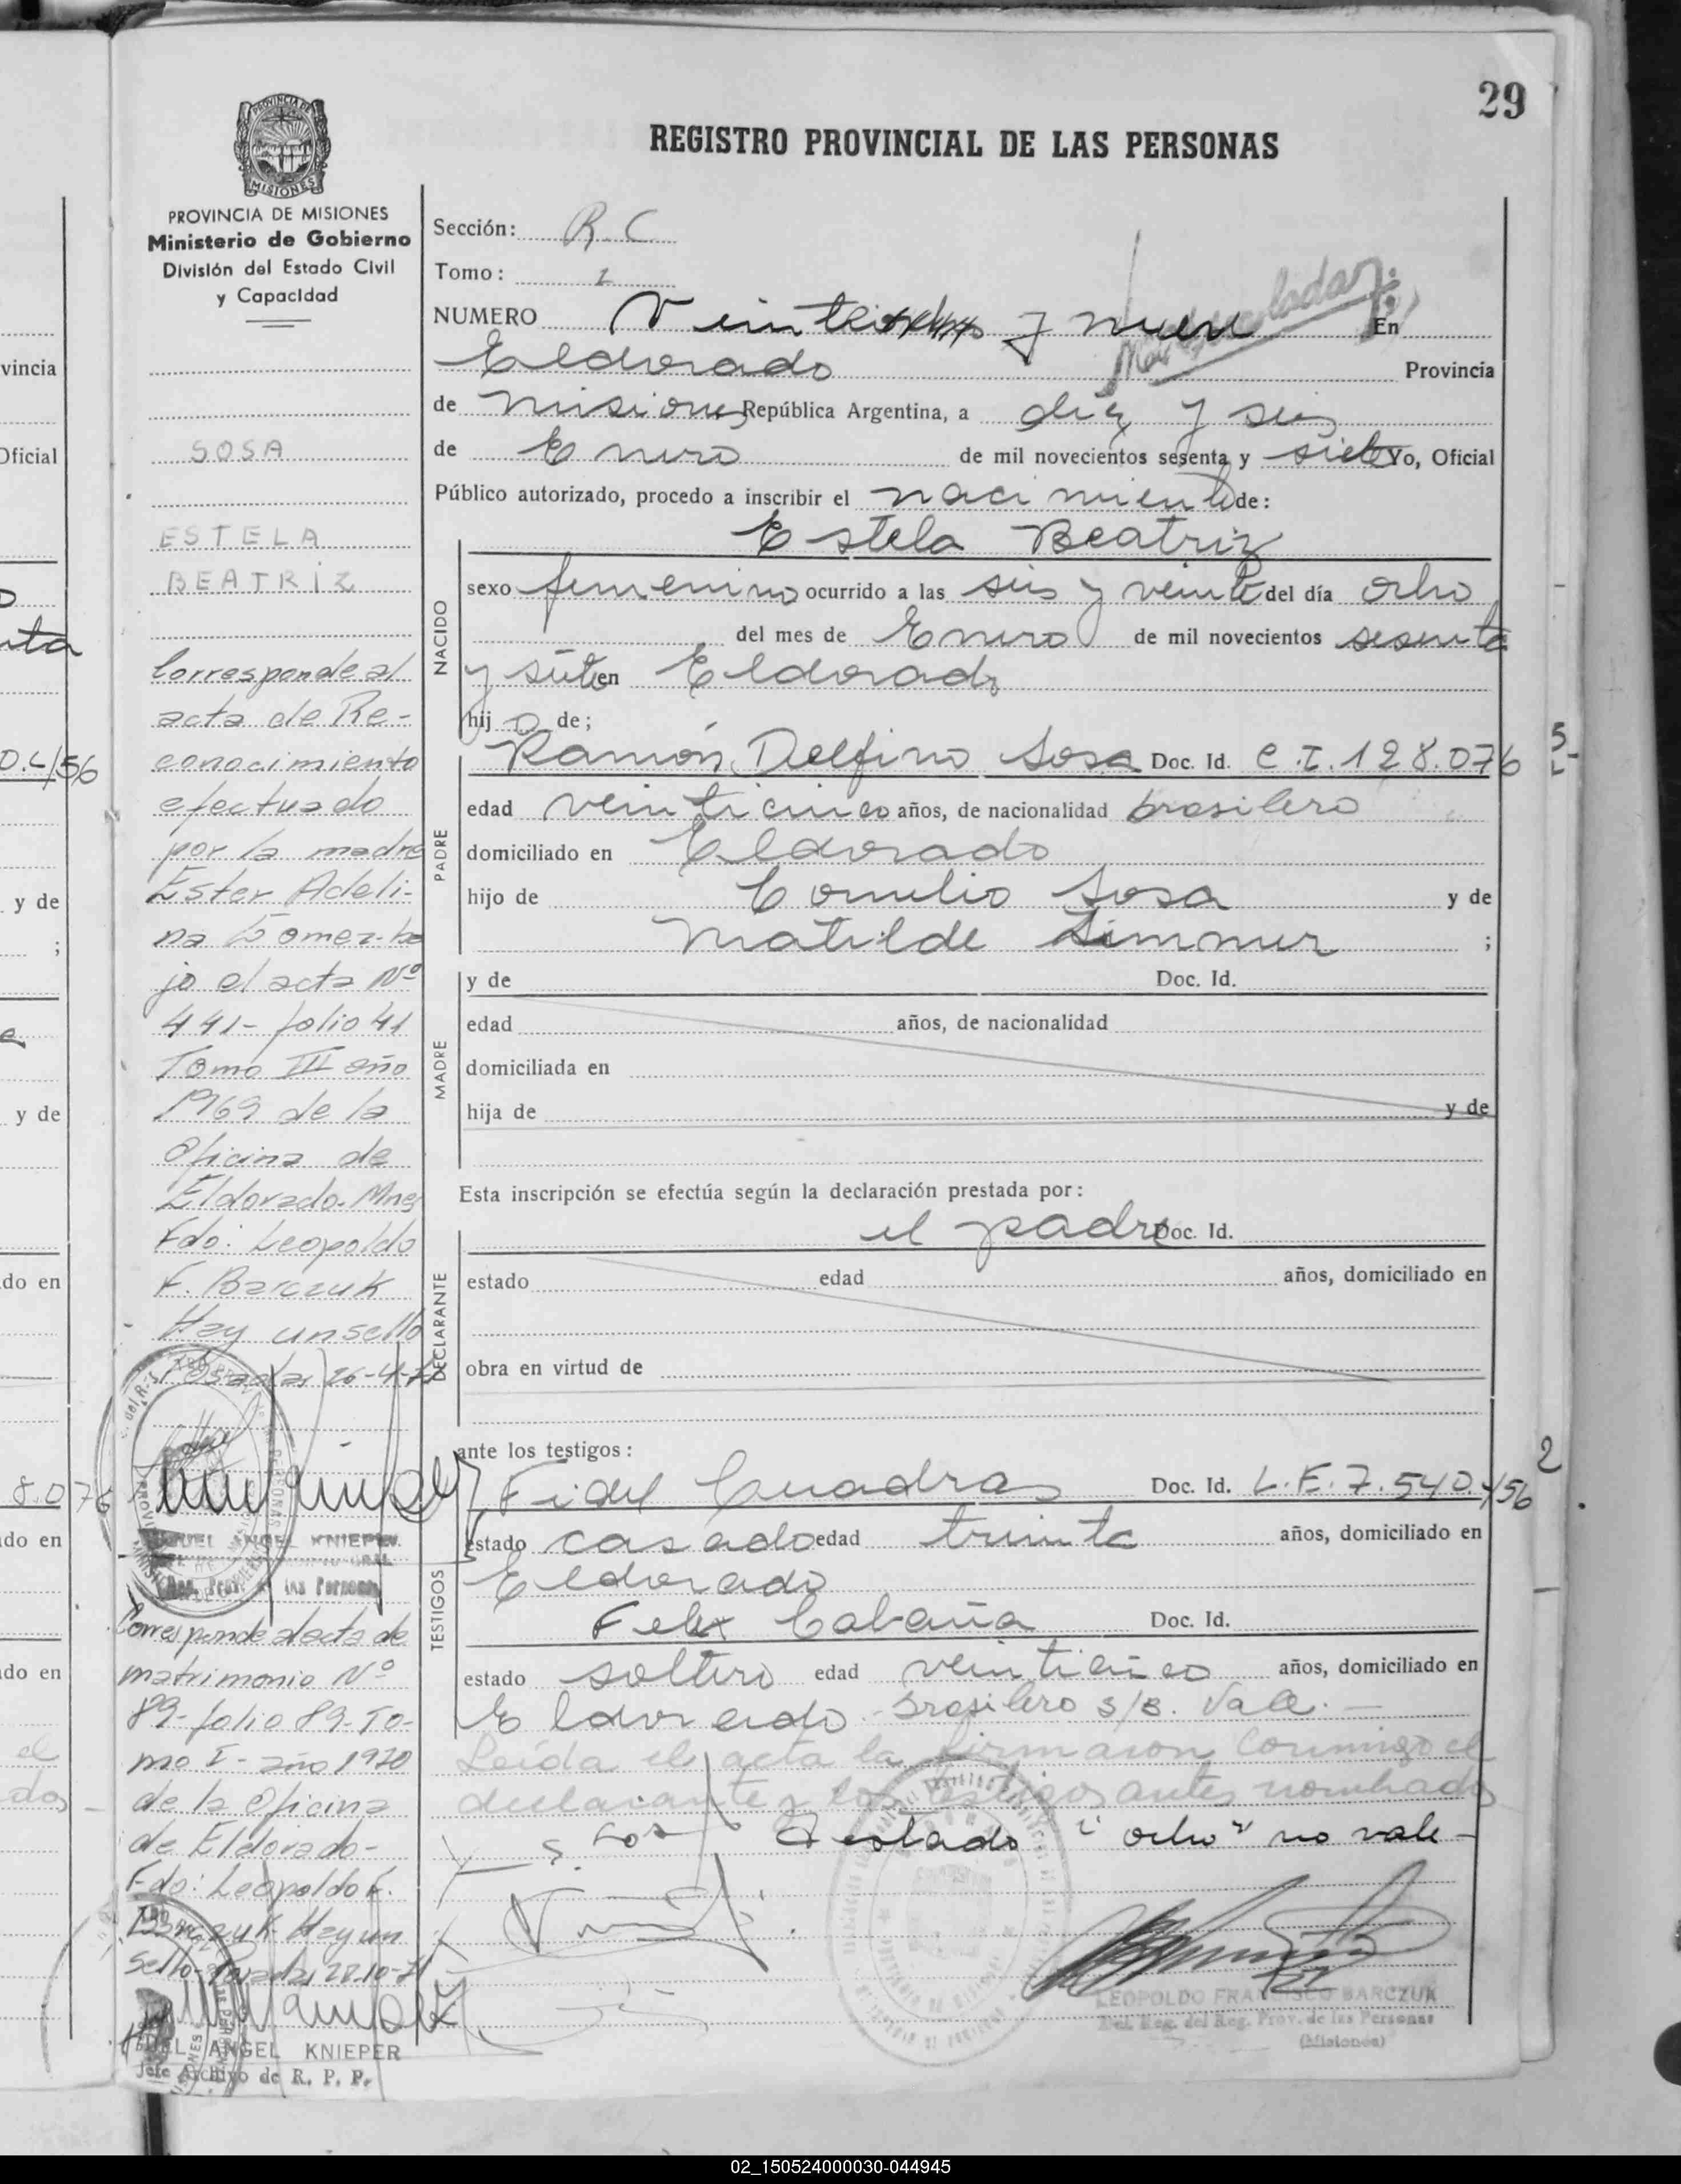 29
REGISTRO PROVINCIAL DE LAS PERSONAS
PROVINCIA DE MISIONES
Ministerio de Gobierno
División del Estado Civil
y Capacidad
SOSA
ESTELA
BEATRIZ
Corresponde al
acta de Re-
conocimiento
efectuado
por la madre
Ester Adeli-
na Gomez-ba
jo el acta Nº
441- folio 41
Tomo III año
1969 de la
Oficina de
Eldorado. Mnes
Fdo: Leopoldo
F. Barczuk
Hay un sello
Posadas 26-4-
MIGUEL ANGEL KNIEPER
Reg. Prov. de las Personas
Corresponde al acta de
matrimonio Nº
89- folio 89- To-
mo I- año 1970
de la Oficina
de Eldorado-
Fdo: Leopoldo F.
Barczuk Hay un
sello- Posadas 28-10-71
ANGEL KNIEPER
Jefe Archivo de R. P. P.
Sección: R. C
Tomo: 1
NUMERO Veinte y nueve En
Eldorado Provincia
de Misiones República Argentina, a diez y seis
de Enero de mil novecientos sesenta y siete Yo, Oficial
Público autorizado, procedo a inscribir el nacimiento de:
Estela Beatriz
NACIDO
sexo femenino ocurrido a las seis y veinte del día ocho
del mes de Enero de mil novecientos sesenta
y siete en Eldorado
hij a de;
PADRE
Ramón Delfino Sosa Doc. Id. C.I. 128.076
edad veinticinco años, de nacionalidad brasilero
domiciliado en Eldorado
hijo de Cornelio Sosa y de
Matilde Simmer ;
MADRE
y de Doc. Id.
edad años, de nacionalidad
domiciliada en
hija de y de
Esta inscripción se efectúa según la declaración prestada por:
DECLARANTE
el padre Doc. Id.
estado edad años, domiciliado en
obra en virtud de
ante los testigos:
TESTIGOS
Fidel Cuadras Doc. Id. L.E. 7.540.456
estado casado edad treinta años, domiciliado en
Eldorado
Felix Cabaña Doc. Id.
estado soltero edad veinticinco años, domiciliado en
Eldorado - Brasilero s/B. Vale. -
Leída el acta la firmaron conmigo el
declarante y los testigos antes nombrados
Testado "ocho" no vale-
LEOPOLDO FRANCISCO BARCZUK
Del. Reg. del Reg. Prov. de las Personas
(Misiones)
02_150524000030-044945